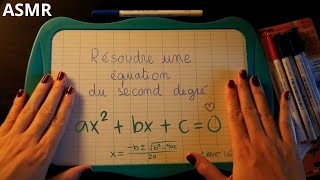 ASMR
Résoudre une
équation
du second degré
ax² + bx + c = 0
x = -b ± √b² - 4ac
2a